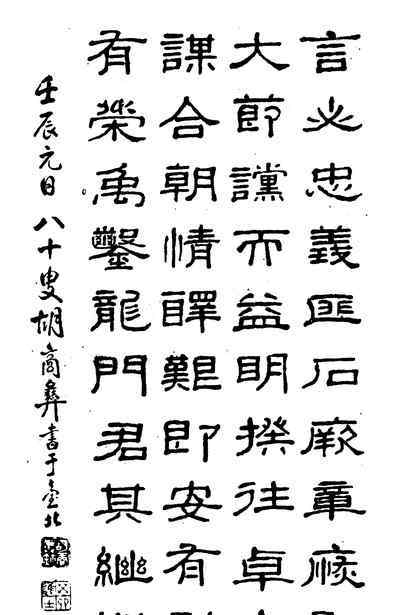 言必忠義匪石厥章
大節讜而益明揆往卓
謀合朝情醳艱即安有
有榮禹鑿龍門君其繼
壬辰元日八十叟胡商彝書于臺北